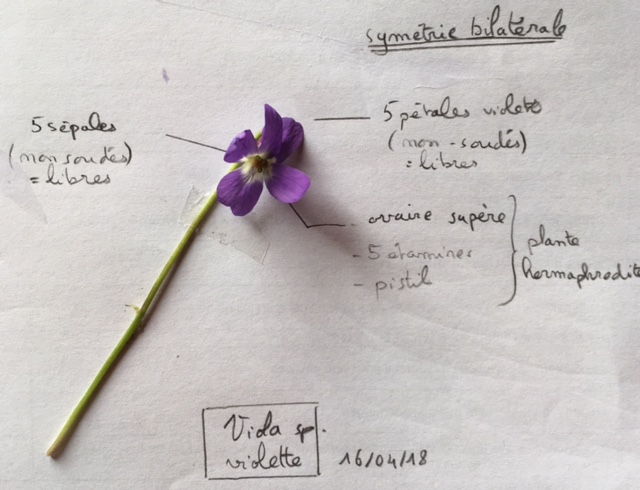 symétrie bilatérale
5 sépales
(non soudés)
= libres
5 pétales violets
(non-soudés)
= libres
ovaire supère
- 5 étamines
- pistil
plante
hermaphrodite
Viola sp.
violette
16/04/18